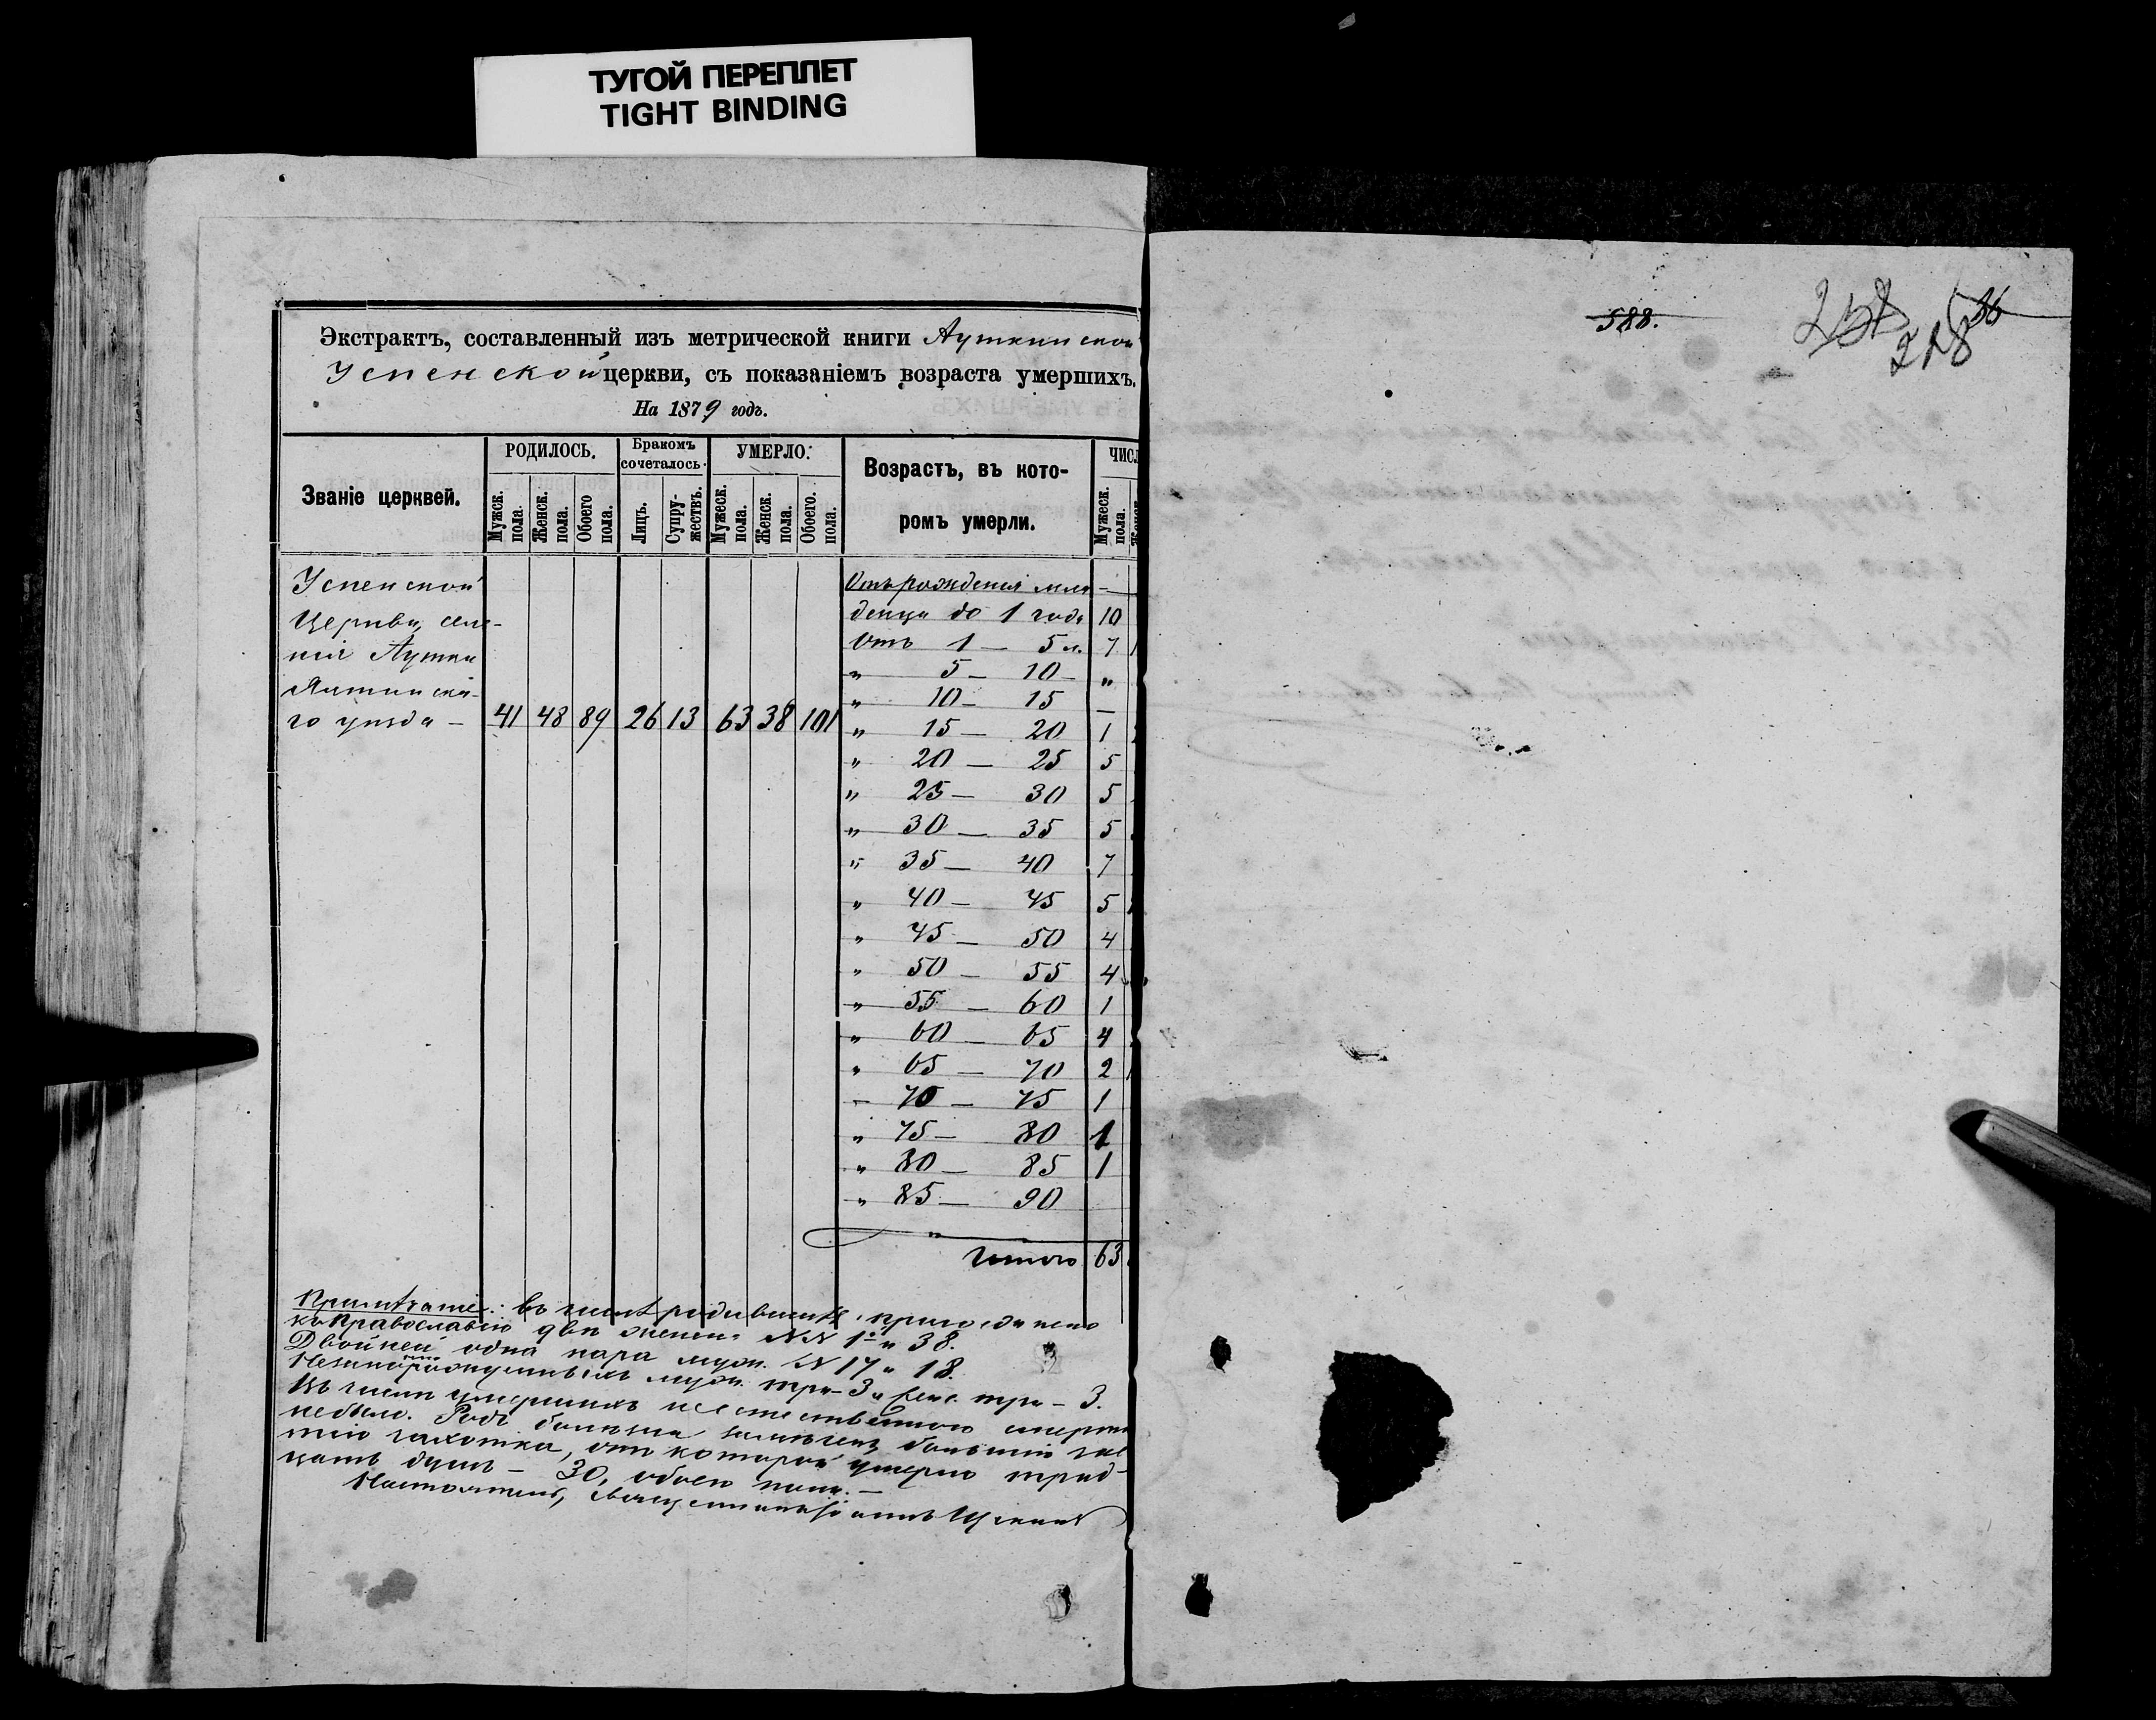 ТУГОЙ ПЕРЕПЛЕТ
TIGHT BINDING
Экстрактъ, составленный изъ метрической книги Ауткинской
Успенской церкви, съ показаніемъ возраста умершихъ.
На 1879 годъ.
Званіе церквей.
РОДИЛОСЬ.
Мужск. пола.
Женск. пола.
Обоего пола.
Бракомъ сочеталось.
Лицъ.
Супружествъ.
УМЕРЛО.
Мужеск. пола.
Женск. пола.
Обоего. пола.
Возрастъ, въ кото-
ромъ умерли.
ЧИСЛ
Мужеск. пола.
Успенской
Церкви, селе-
нія Аутки
Ялтинска-
го уѣзда — 41 48 89 26 13 63 38 101
Отъ рожденія мла —
денца до 1 года 10
Отъ 1 — 5 л. 7
„ 5 — 10 — „
„ 10 — 15 —
„ 15 — 20 1
„ 20 — 25 5
„ 25 — 30 5
„ 30 — 35 5
„ 35 — 40 7
„ 40 — 45 5
„ 45 — 50 4
„ 50 — 55 4
„ 55 — 60 1
„ 60 — 65 4
„ 65 — 70 2
— 70 — 75 1
„ 75 — 80 1
„ 80 — 85 1
„ 85 — 90
„
Итого 63
Примѣчаніе: Въ числѣ родившихъ, присоединено
къ Православію двѣ женск. NN 1й и 38.
Двойней одна пара муж. N 17 и 18.
муж. три — 3 и женс. три — 3.
Въ числѣ умершихъ неестественною смертію
небыло. Родъ болѣзни
чахотка, отъ которой умерло трид-
цать душъ — 30, обоего пола. —
Настоятель, священникъ
588.
218